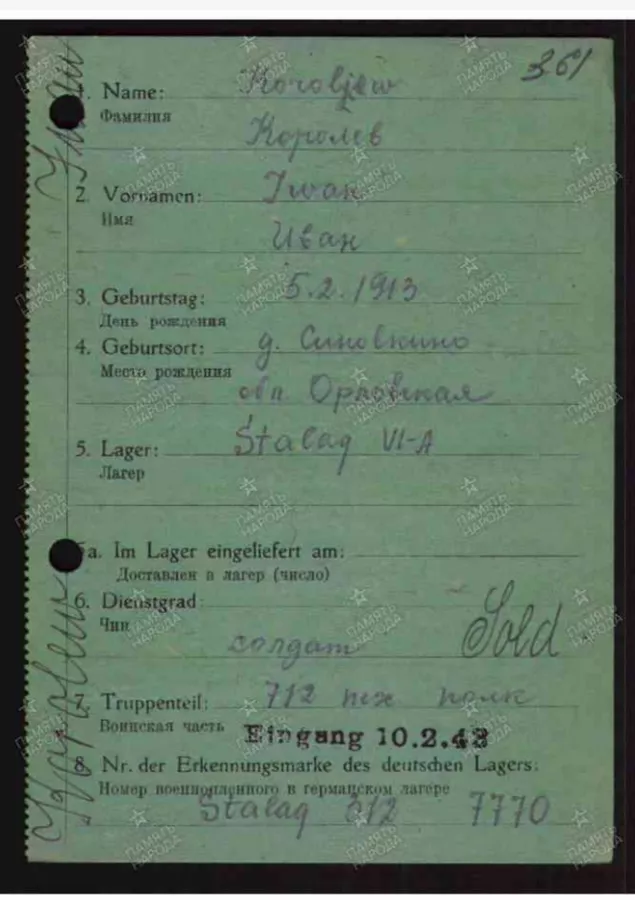 361
1. Name: Koroljew
Фамилия
Королев
2. Vornamen: Iwan
Имя
Иван
3. Geburtstag: 5.2.1913
День рождения
4. Geburtsort: д. Синовкино
Место рождения
обл Орловская
5. Lager: Stalag VI-A
Лагер
5a. Im Lager eingeliefert am:
Доставлен в лагер (число)
6. Dienstgrad:
Чин
солдат Sold
7. Truppenteil: 712 полк
Воинская часть
Eingang 10.2.43
8. Nr. der Erkennungsmarke des deutschen Lagers:
Номер военнопленного в германском лагере
Stalag 312 7770
ПАМЯТЬ
НАРОДА